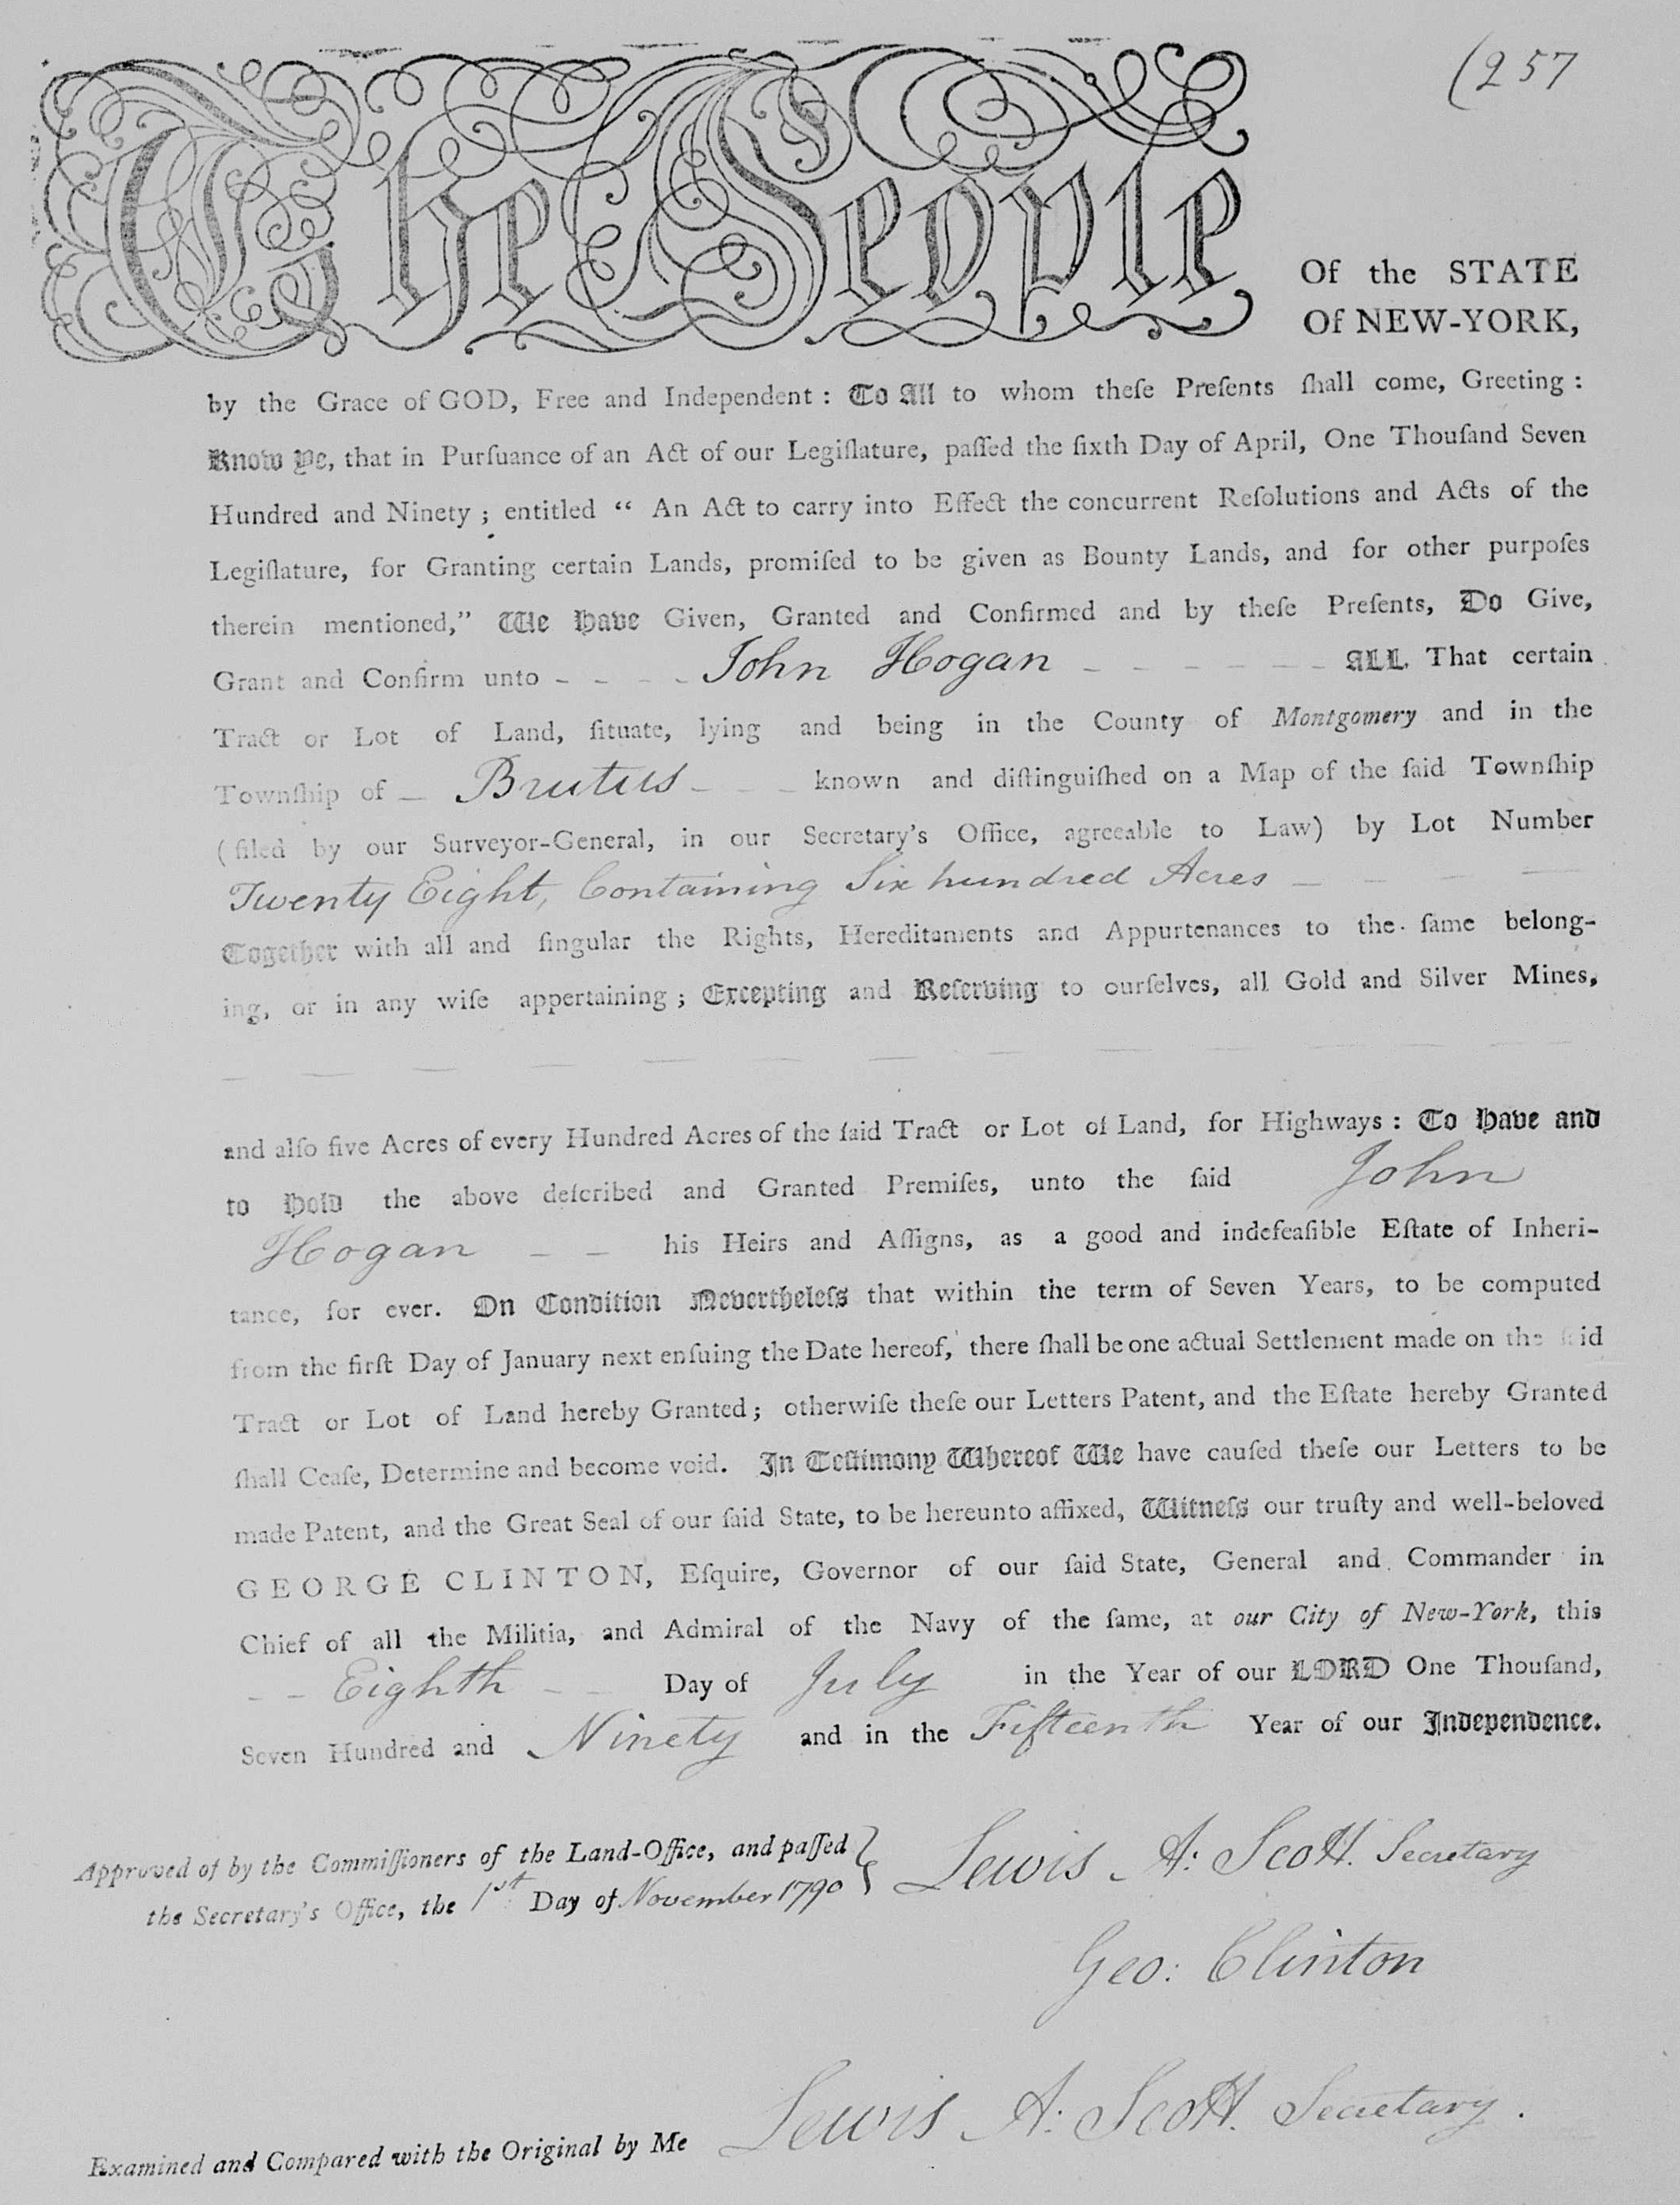 (257
The People Of the STATE
Of NEW-YORK,
by the Grace of GOD, Free and Independent : To All to whom theſe Preſents ſhall come, Greeting :
Know Ye, that in Purſuance of an Act of our Legiſlature, paſſed the ſixth Day of April, One Thouſand Seven
Hundred and Ninety ; entitled “ An Act to carry into Effect the concurrent Reſolutions and Acts of the
Legiſlature, for Granting certain Lands, promiſed to be given as Bounty Lands, and for other purpoſes
therein mentioned,” We Have Given, Granted and Confirmed and by theſe Preſents, Do Give,
Grant and Confirm unto - - - - John Hogan - - - - - - - ALL That certain
Tract or Lot of Land, ſituate, lying and being in the County of Montgomery and in the
Township of — Brutus - - - known and diſtinguiſhed on a Map of the ſaid Townſhip
(filed by our Surveyor-General, in our Secretary's Office, agreeable to Law) by Lot Number
Twenty Eight, Containing Six hundred Acres — — — — —
Together with all and ſingular the Rights, Hereditaments and Appurtenances to the ſame belong-
ing, or in any wiſe appertaining ; Excepting and Reſerving to ourſelves, all Gold and Silver Mines,
and alſo five Acres of every Hundred Acres of the ſaid Tract or Lot of Land, for Highways : To Have and
to Hold the above deſcribed and Granted Premiſes, unto the ſaid John
Hogan — — his Heirs and Aſſigns, as a good and indefeaſible Eſtate of Inheri-
tance, for ever. On Condition Nevertheleſs that within the term of Seven Years, to be computed
from the firſt Day of January next enſuing the Date hereof, there ſhall be one actual Settlement made on the ſaid
Tract or Lot of Land hereby Granted ; otherwiſe theſe our Letters Patent, and the Eſtate hereby Granted
ſhall Ceaſe, Determine and become void. In Teſtimony Whereof We have cauſed theſe our Letters to be
made Patent, and the Great Seal of our ſaid State, to be hereunto affixed, Witneſs our truſty and well-beloved
GEORGE CLINTON, Eſquire, Governor of our ſaid State, General and Commander in
Chief of all the Militia, and Admiral of the Navy of the ſame, at our City of New-York, this
- - Eighth - - Day of July in the Year of our LORD One Thouſand,
Seven Hundred and Ninety and in the Fifteenth Year of our Independence.
Approved of by the Commiſſioners of the Land-Office, and paſſed } Lewis A: Scott. Secretary
the Secretary's Office, the 1st Day of November 1790
Geo: Clinton
Examined and Compared with the Original by Me Lewis A: Scott. Secretary.